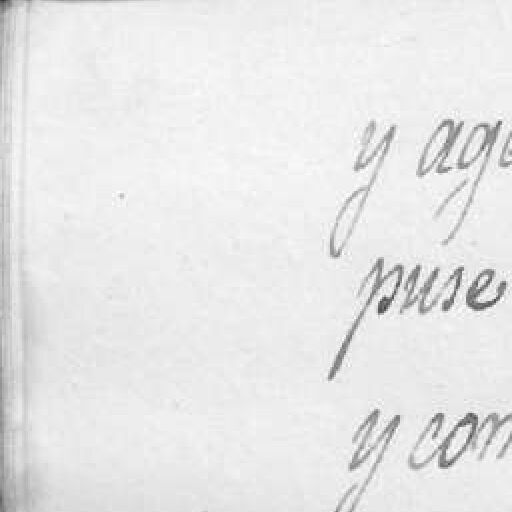 y age
puse
y com